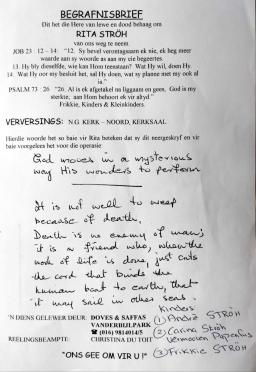 BEGRAFNISBRIEF
Dit het die Here van lewe en dood behaag om
RITA STRÖH
van ons weg te neem
JOB 23 12 – 14: "12. Sy bevel verontagsaam ek nie, ek heg meer
waarde aan sy woorde as aan my eie begeertes.
13. Hy bly dieselfde, wie kan Hom teenstaan? Wat Hy wil, doen Hy.
14. Wat Hy oor my besluit het, sal Hy doen, wat sy planne met my ook al
is."
PSALM 73 26 "26. Al is ek afgetakel na liggaam en gees, God is my
sterkte, aan Hom behoort ek vir altyd."
Frikkie, Kinders & Kleinkinders.
VERVERSINGS: N.G. KERK – NOORD, KERKSAAL
Hierdie woorde het so baie vir Rita beteken dat sy dit neergeskryf en vir
baie voorgelees het voor die operasie
God moves in a mysterious
way His wonders to perform
It is not well to weep
because of death.
Death is no enemy of man;
it is a friend who, when the
work of life is done, just cuts
the cord that binds the
human boat to earth, that
it may sail in other seas.
Kinders
(1) André STRÖH
(2) Carina Ströh
Vermooten
(3) Frikkie STRÖH
'N DIENS GELEWER DEUR: DOVES & SAFFAS
VANDERBIJLPARK
☎ (016) 9814014/5
REELINGSBEAMPTE: CHRISTINA DU TOIT
"ONS GEE OM VIR U!"